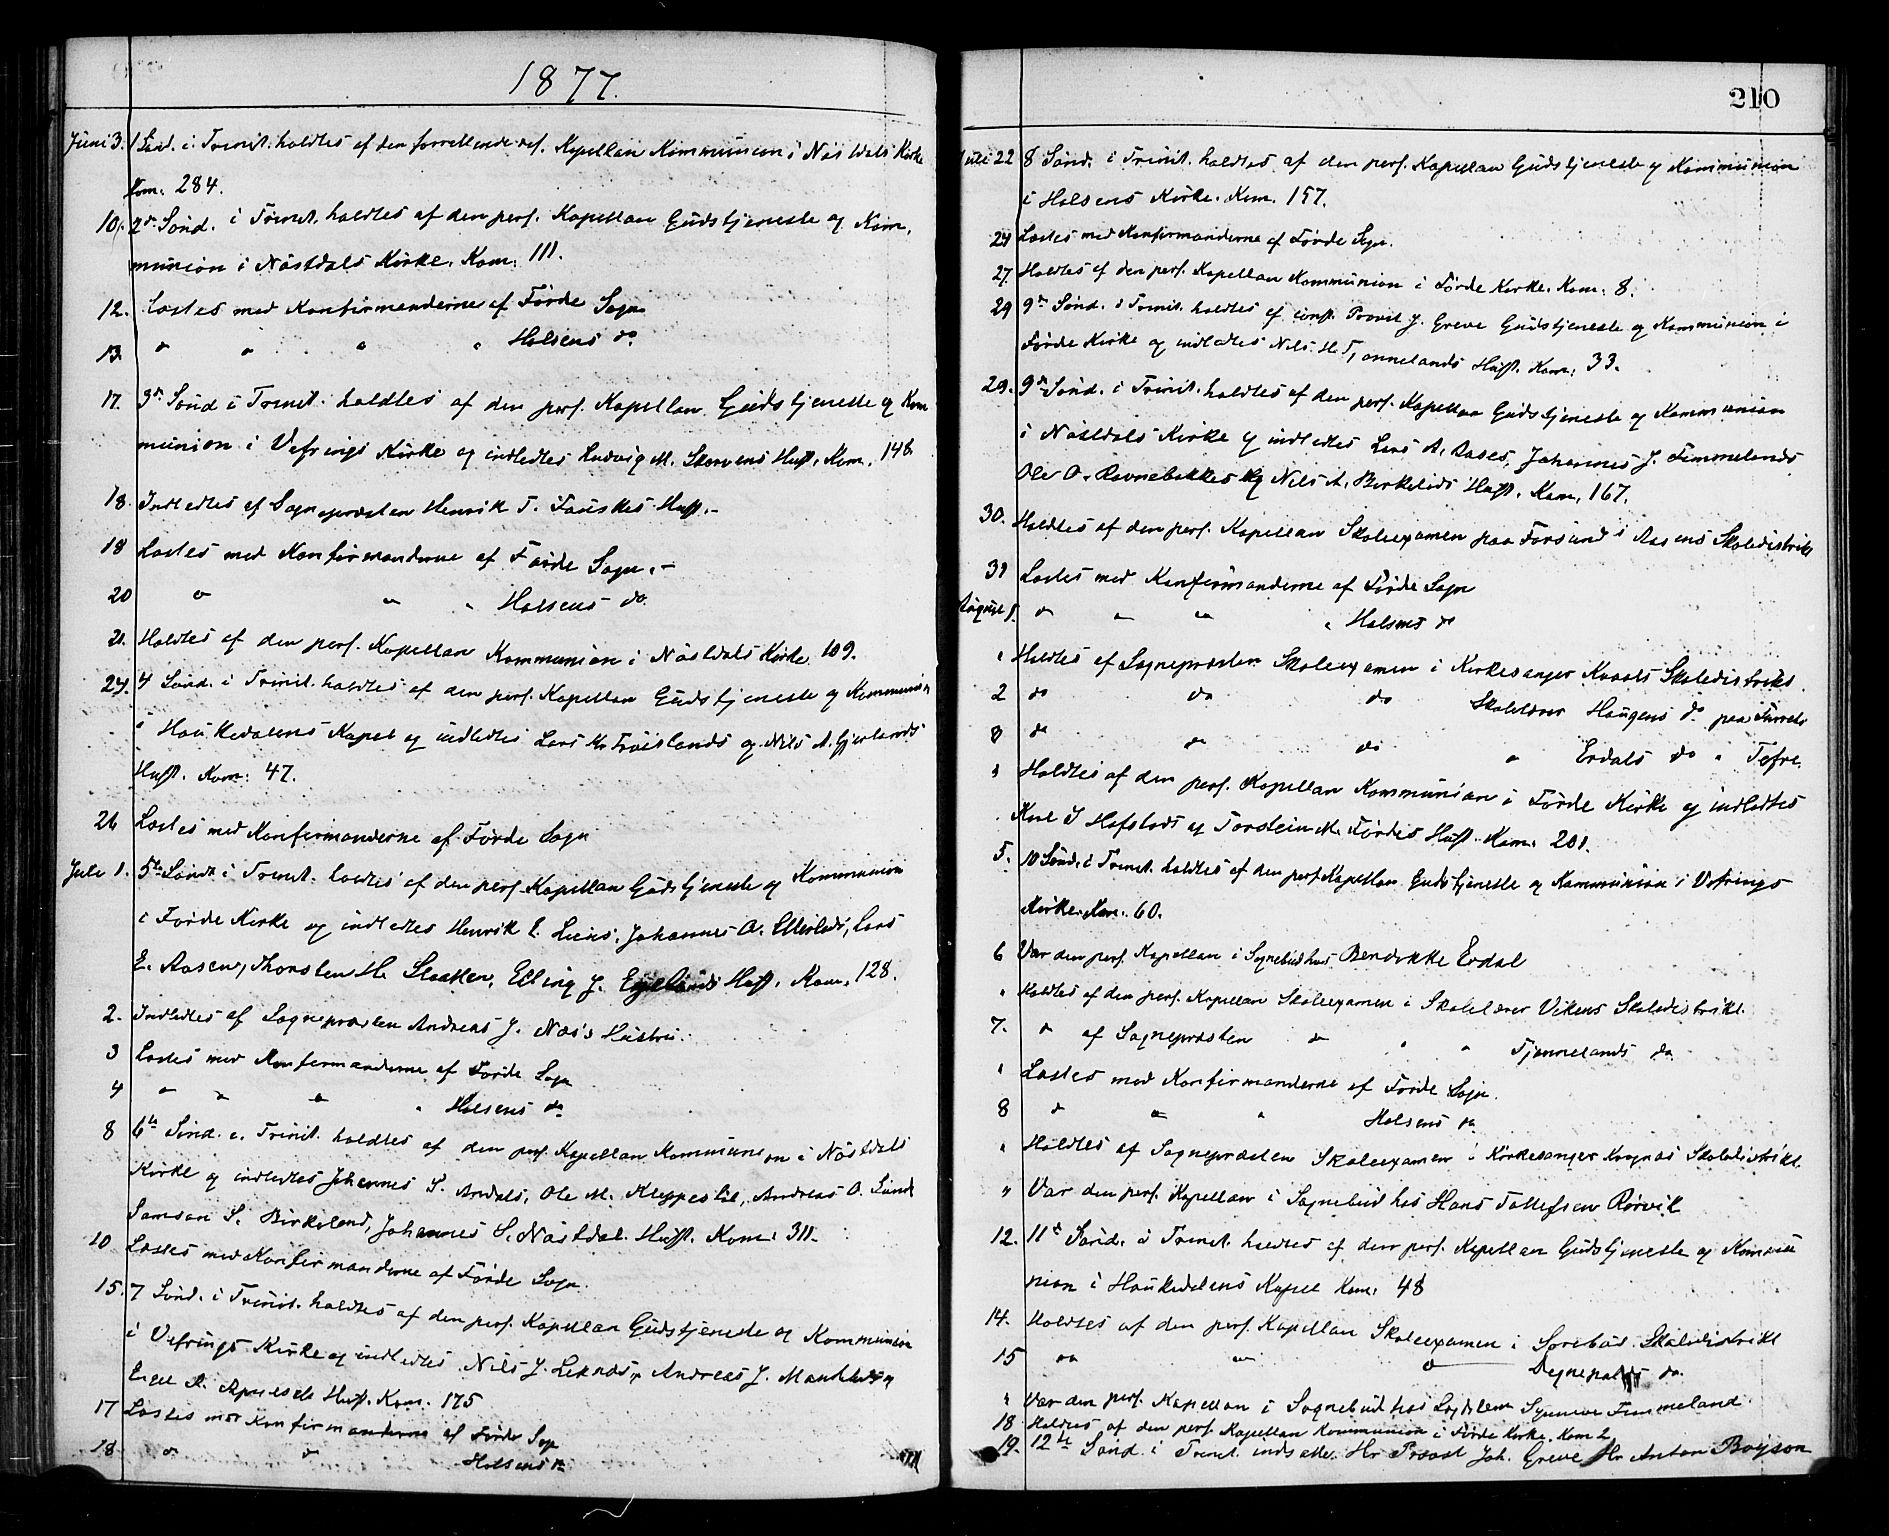 1877.
Juni 3. 1 Sønd. i Trinit. holdtes af den perf. Kapellan Kommunion i Nøstdals Kirke
Kom. 284.
10. 2den Sønd. i Trinit. holdtes af den perf. Kapellan Gudstjeneste og Kom,
munion i Nøstdals Kirke. Kom. 111.
12. Læstes med Konfirmanderne af Førde Sogn
13. " " " " Holsens do
17. 3de Sønd i Trinit. holdtes af den perf. Kapellan Gudstjeneste og Kom
munion i Vefrings Kirke og indledtes Ludvig M. Hust. Kom. 148
18. Indledtes af Sognepræsten Henrik T. Fauskes Hust.-
18 Læstes med Konfirmanderne af Førde Sogn.-
20 " " " Holsens do.
21. Holdtes af den perf. Kapellan Kommunion i Nøstdals Kirke 109.
24. 4 Sønd. i Trinit. holdtes af den perf. Kapellan Gudstjeneste og Kommunion
i Haukedalens Kapel og indledtes Lars Frøislands og Nils A. Gjerlands
Hust. Kom: 47.
26 Læstes med Konfirmanderne af Førde Sogn
Juli 1. 5te Sønd i Trinit. holdtes af den perf. Kapellan Gudstjeneste og Kommunion
i Førde Kirke og indledtes Henrik E. Johannes A. Lars
E. Aasen, Thorsten H. Elling J. Hust. Kom. 128.
2. Indledtes af Sognepræsten Andreas J. Næs's Hustru.
3 Læstes med Konfirmanderne af Førde Sogn
4 " " " " Holsens do
8 6te Sønd. i Trinit. holdtes af den perf. Kapellan Kommunion i Nøstdals
Kirke og indledtes Johannes S. Andals, Ole M. Kleppestøl, Andreas O. Sunde
Samson S. Birkeland, Johannes S. Nøstdal. Hust. Kom. 311.
10 Læstes med Konfirmanderne af Førde Sogn.
15. 7 Sønd. i Trinit. holdtes af den perf. Kapellan Gudstjeneste og Kommunion
i Vefrings Kirke og indledtes Nils J. Leknæs, Andreas J.
A. Hust. Kom. 175
17 Læstes med Konfirmanderne af Førde Sogn
18. " " Holsens do
210
Juli 22 8 Sønd. i Trinit. holdtes af den perf. Kapellan Gudstjeneste og Kommunion
i Holsens Kirke. Kom. 157.
24 Læstes med Konfirmanderne af Førde Sogn.
27. Holdtes af den perf. Kapellan Kommunion i Førde Kirke. Kom. 8.
29 9de Sønd. i Trinit. holdtes af const. Provst J. Greve Gudstjeneste og Kommunion i
Førde Kirke og indledtes Nils H. Tjønnelands Hust. Kom. 33.
29. 9de Sønd. i Trinit. holdtes af den perf. Kapellan Gudstjeneste og Kommunion
i Nøstdals Kirke og indledtes Lars A. Aases, Johannes J. Fimmelands
Ole O. Ravnebakkes og Nils A. Birkelids Hust. Kom. 167.
30. Holdtes af den perf. Kapellan Skoleexamen paa Farsund i Aasens Skoledistrikt
31 Læstes med Konfirmanderne af Førde Sogn
August 1. " " " " Holsens do
" Holdtes af Sognepræsten Skoleexamen i Kirkesanger Kvaals Skoledistrikt.
2 do do do Skolelærer Haugens do paa
3 do do do " Erdals do " Tefre.
" Holdtes af den perf. Kapellan Kommunion i Førde Kirke og indledtes
Hofstads og Torstein M. Førdes Hust. Kom. 201.
5. 10 Sønd. i Trinit. holdtes af den perf. Kapellan Gudstjeneste og Kommunion i Vefrings
Kirke. Kom. 60.
6 Var den perf. Kapellan i Sognebud hos Bendikke Erdal
" Holdtes af den perf. Kapellan Skoleexamen i Skolelærer Vikens Skoledistrikt.
7. " af Sognepræsten do " " Tjønnelands do.
" Læstes med Konfirmanderne af Førde Sogn.
8 " " " Holsens do
" Holdtes af Sognepræsten Skoleexamen i Kirkesanger Skoledistrikt.
" Var den perf. Kapellan i Sognebud hos Hans Tollefsen Rørvik
12. 11te Sønd. i Trinit. holdtes af den perf. Kapellan Gudstjeneste og Kommu
nion i Haukedalens Kapel Kom. 48
14. Holdtes af den perf. Kapellan Skoleexamen i Skoledistrikt
15 " " " Degnepolls do.
" Var den perf. Kapellan i Sognebud hos Synneve Fimmeland.
18 Holdtes af den perf. Kapellan Kommunion i Førde Kirke. Kom 2
19. 12te Sønd. i Trinit. indsatte Hr Provst Joh. Greve Hr Anton Boyson